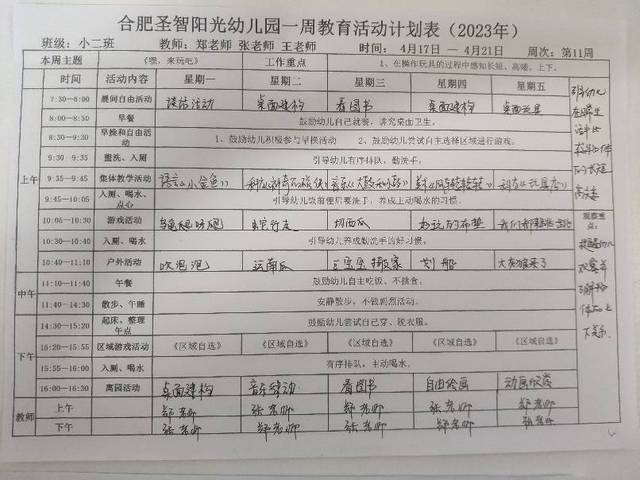 合肥圣智阳光幼儿园一周教育活动计划表（2023年）
班级：小二班 教师：郑老师 张老师 王老师 时间： 4月17日 — 4月21日 周次：第11周
本周主题 《嘿，来玩吧》 工作重点 1、在操作玩具的过程中感知长短、高矮、上下。
时间 活动内容 星期一 星期二 星期三 星期四 星期五
上午
7:30—8:00 晨间自由活动 谈话活动 桌面建构 看图书 桌面建构 桌面玩具
8:00—8:30 早餐 鼓励幼儿自己就餐，讲究桌面卫生。
8:30—9:30 早操和自由活动 1、鼓励幼儿积极参与早操活动 2、鼓励幼儿尝试自主选择区域进行游戏。
9:30 9:35 盥洗、入厕 引导幼儿有序排队、勤洗手。
9:35—9:45 集体教学活动 语言《小金鱼》
9:45—10:05 入厕、喝水、点心 引导幼儿饭前便后要洗手，养成主动喝水的习惯。
10:05—10:30 游戏活动 切西瓜 好玩的布垫
10:30—10:40 入厕、喝水 引导幼儿养成勤洗手的好习惯。
10:40—11:10 户外活动 吹泡泡 运南瓜 豆宝宝搬家 划船 大灰狼来了
中午
11:10—11:40 午餐 鼓励幼儿自主吃饭、不挑食。
11:40—14:30 散步、午睡 安静散步，不做剧烈活动。
下午
14:30—15:20 起床、整理 午点 鼓励幼儿尝试自己穿、脱衣服。
15:20—15:55 区域游戏活动 《区域自选》 《区域自选》 《区域自选》 《区域自选》 《区域自选》
15:55—16:00 入厕、喝水 有序排队，主动喝水。
16:00—16:30 离园活动 桌面建构 音乐律动 看图书 自由绘画 动画欣赏
教师
上午 郑老师 张老师 郑老师 张老师 郑老师
下午 张老师 郑老师 张老师 郑老师 张老师
观察重点：